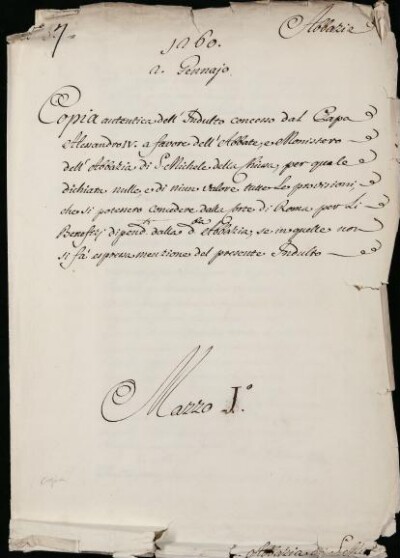 7
Abbazia
1260.
2. Gennajo.
Copia autentica dell'Indulto concesso dal Papa
Alessandro IV. a favore dell'Abbate, e Monistero
dell'Abbazia di S. Michele della Chiusa, per quale
dichiara nulle, e di niun valore tutte le provisioni,
che si potessero concedere dalla Corte di Roma per li
Beneficj dipend.ti dalla d.ta Abbazia, se in quelle non
si fà espressa menzione del presente Indulto
Mazzo I.o
Abbazia di S. Mich